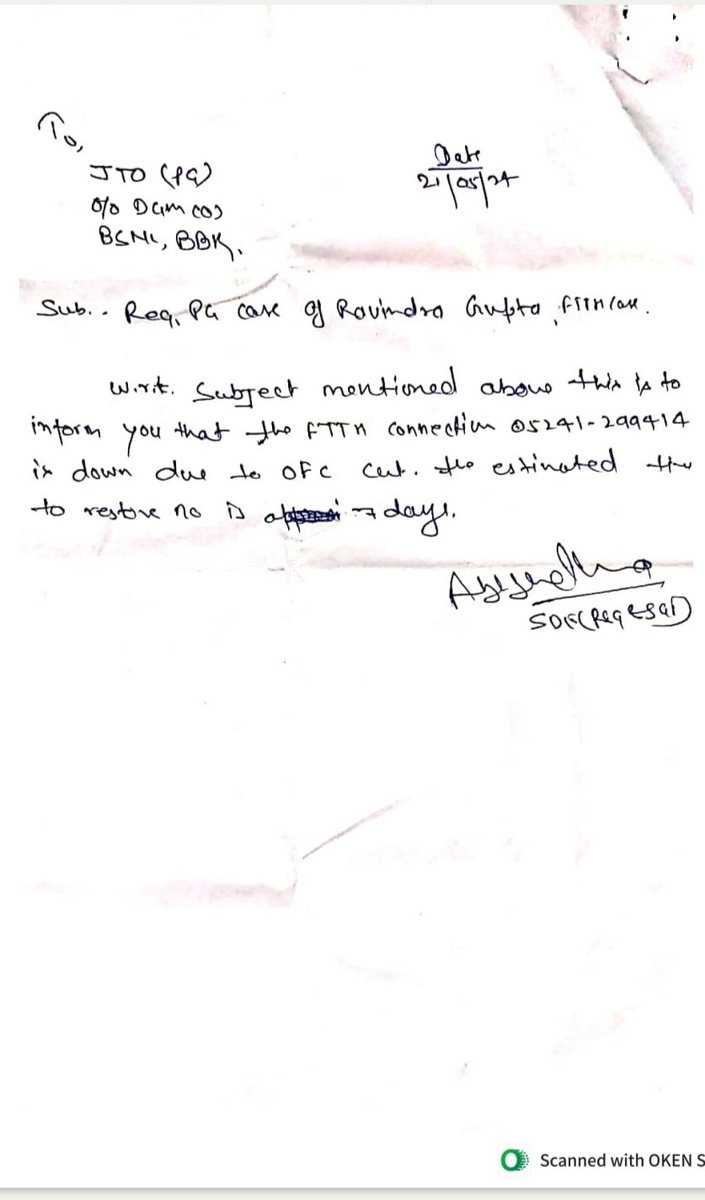 To,
JTO (PG)
O/o DGM (O)
BSNL, BBK.
Date
21/05/24
Sub.- Reg. PG case of Ravindra Gupta, FTTH case.
W.r.t. Subject mentioned above this is to
inform you that the FTTH connection 05241-299414
is down due to OFC cut. the estimated time
to restore no is 7 days.
SDE(
Scanned with OKEN S